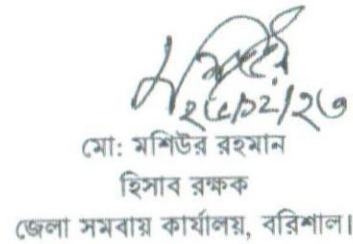 মো: মশিউর রহমান
হিসাব রক্ষক
জেলা সমবায় কার্যালয়, বরিশাল।